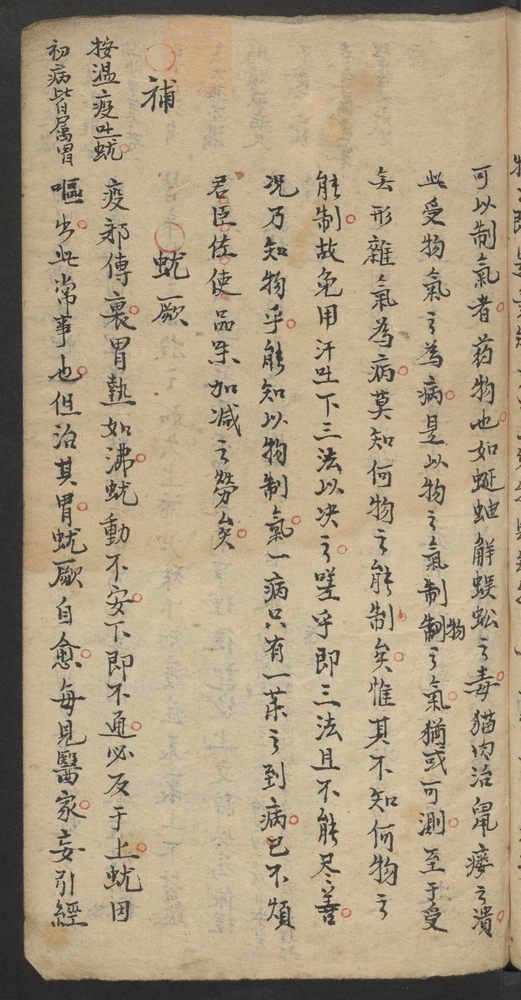 可以制氣者。药物也。如蜒蚰觧蜈蚣之毒。猫肉治鼠瘻之潰
此受物氣之為病。是以物之氣制物之氣。猶或可測。至于受
無形雜氣為病。莫知何物之能制矣。惟其不知何物之
能制。故免用汗吐下三法以决之。嗟乎即三法且不能尽善。
况乃知物乎。能知以物制氣。一病只有一藥之到病已。不煩
君臣佐使品味加减之勞矣。
○補 ○蚘厥
疫邪傳裏。胃熱如沸。蚘動不安。下即不通。必反于上。蚘因
嘔出。此常事也。但治其胃。蚘厥自愈。每見醫家。妄引經
按温疫吐蚘。
初病皆属胃